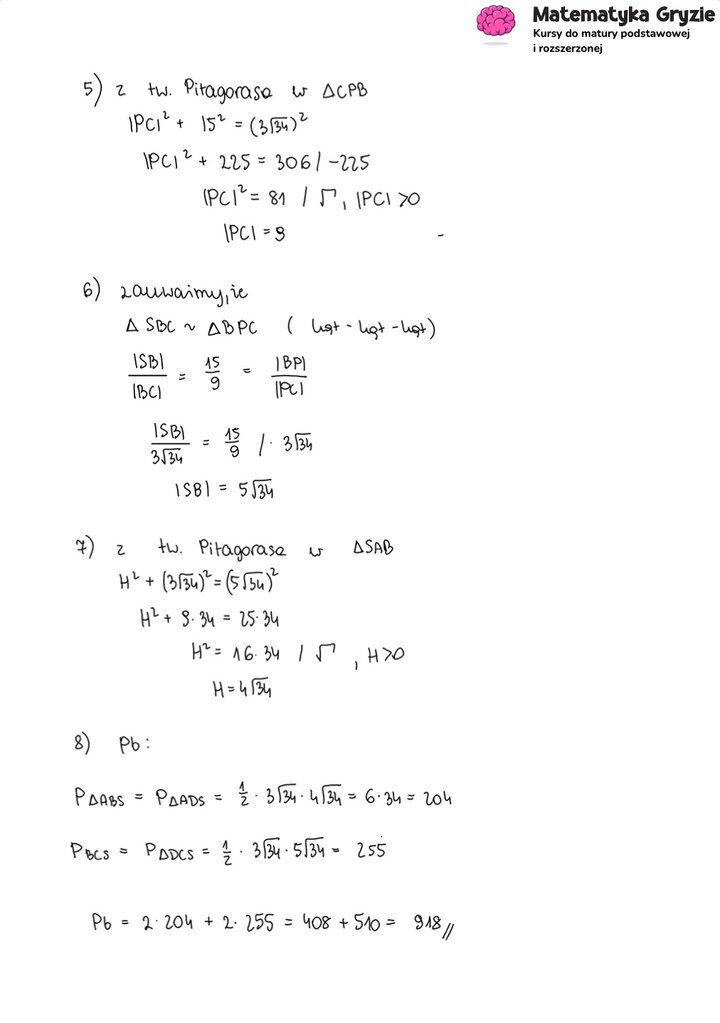 Matematyka Gryzie
Kursy do matury podstawowej
i rozszerzonej
5) z tw. Pitagorasa w ΔCPB
|PC|² + 15² = (3√34)²
|PC|² + 225 = 306 / -225
|PC|² = 81 / √ , |PC| > 0
|PC| = 9
6) zauważmy, że
Δ SBC ~ ΔBPC ( kąt - kąt - kąt)
|SB|/|BC| = 15/9 = |BP|/|PC|
|SB|/3√34 = 15/9 / · 3√34
|SB| = 5√34
7) z tw. Pitagorasa w ΔSAB
H² + (3√34)² = (5√34)²
H² + 9·34 = 25·34
H² = 16·34 / √ , H>0
H = 4√34
8) Pb :
PΔABS = PΔADS = 1/2 · 3√34 · 4√34 = 6·34 = 204
PBCS = PΔDCS = 1/2 · 3√34 · 5√34 = 255
Pb = 2·204 + 2·255 = 408 + 510 = 918//